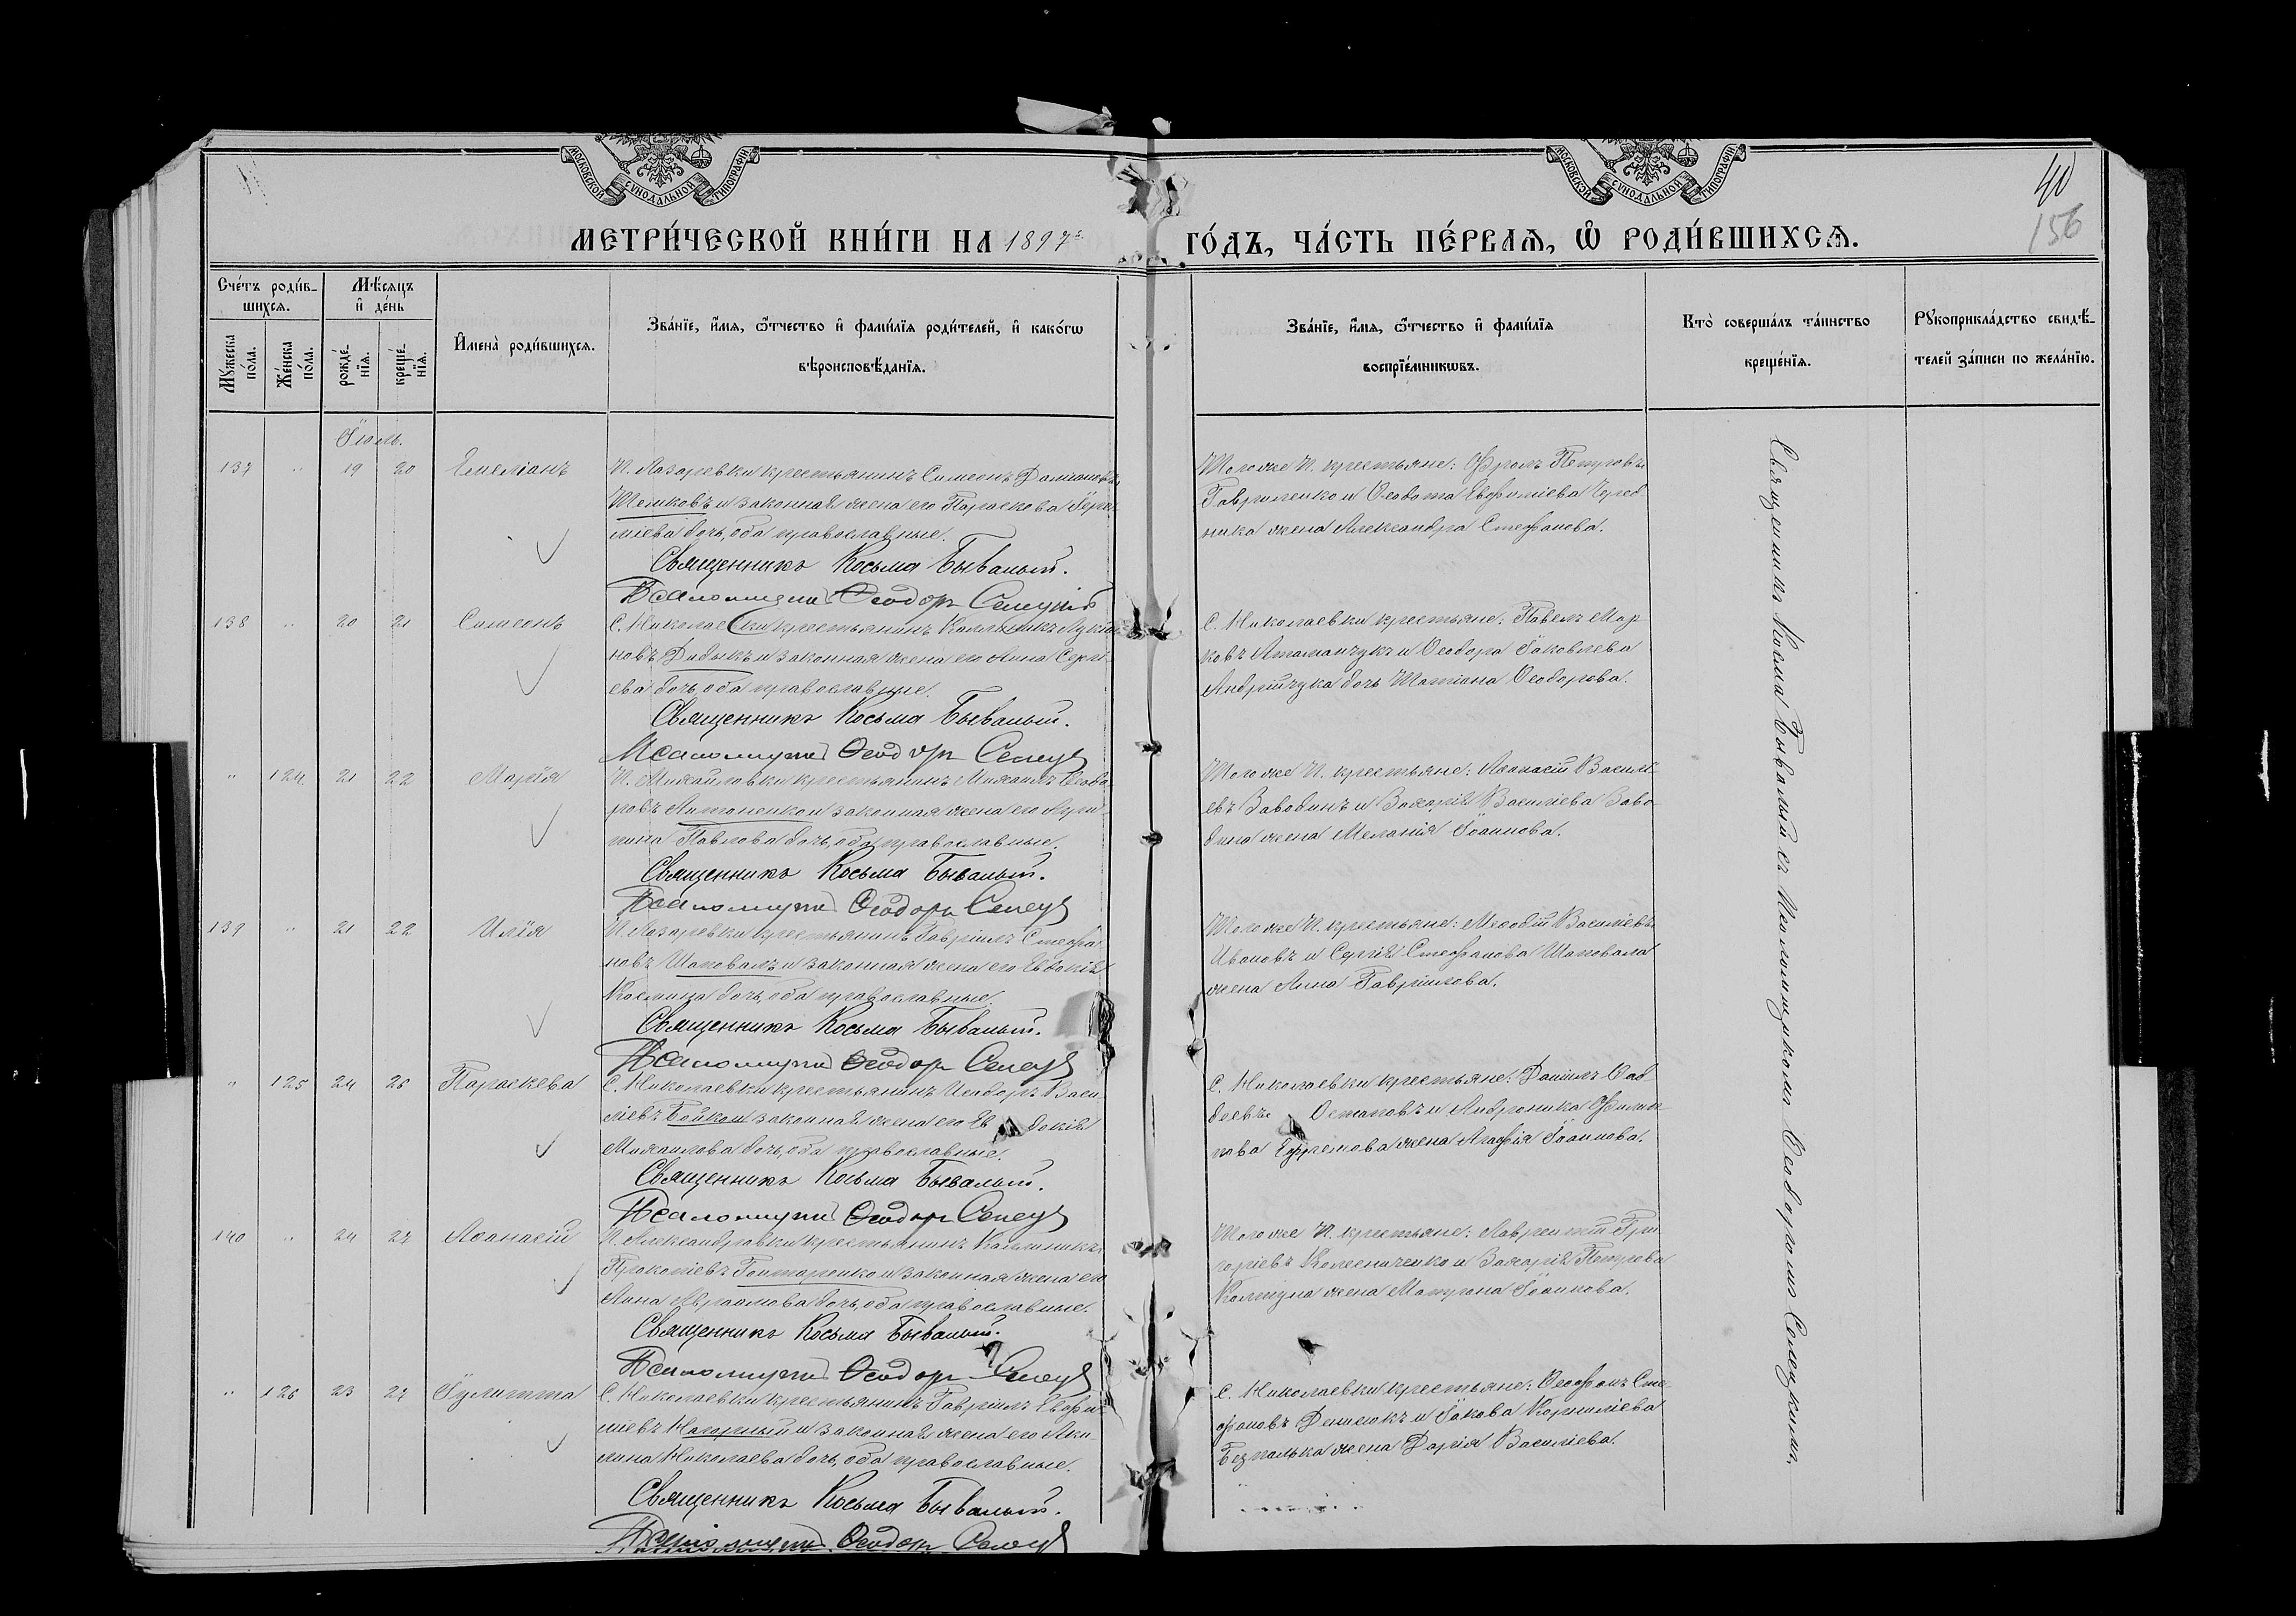 МОСКОВСКОЙ СѴНОДАЛЬНОЙ ТИПОГРАФІИ
МОСКОВСКОЙ СѴНОДАЛЬНОЙ ТИПОГРАФІИ
40
156
МЕТРИ́ЧЕСКОЙ КНИ́ГИ НА 1897й ГО́ДЪ, ЧА́СТЬ ПЕ́РВАѦ, Ѡ҆ РОДИ́ВШИХСѦ.
Сче́тъ роди́в-
шихсѧ.
Мꙋ́жеска по́ла.
Же́нска по́ла.
Мѣ́сѧцъ
и҆ де́нь
рожде́-нїѧ.
креще́-нїѧ.
И҆мена̀ роди́вшихсѧ.
Зва́нїе, и҆́мѧ, ѻ҆́тчество и҆ фами́лїѧ роди́телей, и҆ како́гѡ
вѣроисповѣ́данїѧ.
Зва́нїе, и҆́мѧ, ѻ҆́тчество и҆ фами́лїѧ
воспрїе́мникѡвъ.
Кто̀ соверша́лъ та́инство
креще́нїѧ.
Рꙋкоприкла́дство свидѣ́-
телей за́писи по жела́нїю.
Іюль.
137 " 19 20 Емеліанъ
П. Лазаревки крестьянинъ Симеонъ Даміановъ
Шешковъ и законная жена его Параскева
дочь, оба православные.
Священникъ Косьма Бывалый.
Псаломщикъ Ѳеодоръ Селецкій
Того же П. крестьяне: Фролъ Петровъ
Гавриленко и Ѳедота Евфиміева Черед-
ника жена Александра Стефанова.
138 " 20 21 Симеонъ
С. Николаевки крестьянинъ Каллиникъ Лукіа-
новъ Дидыкъ и законная жена его Анна Сергі-
ева дочь, оба православные.
Священникъ Косьма Бывалый.
Псаломщикъ Ѳеодоръ Селецк
С. Николаевки крестьяне: Павелъ Мар-
ковъ Атаманчукъ и Ѳеодора Іаковлева
Андрійчука дочь Татіана Ѳеодорова.
" 124 21 22 Марія
П. Михайловки крестьянинъ Михаилъ Ѳеодо-
ровъ Антоненко и законная жена его Агрип-
пина Павлова дочь, оба православные.
Священникъ Косьма Бывалый.
Псаломщикъ Ѳеодоръ Селецк
Того же П. крестьяне: Аѳанасій Василі-
евъ Заводинъ и Захарія Василіева Заво-
дина жена Меланія Іоаннова.
139 " 21 22 Илія
П. Лазаревки крестьянинъ Гавріилъ Стефа-
новъ Шаповалъ и законная жена его Евдокія
Космина дочь, оба православные.
Священникъ Косьма Бывалый.
Псаломщикъ Ѳеодоръ Селецк
Того же П. крестьяне: Меѳодій Василіевъ
Ивановъ и Сергія Стефанова Шаповала
жена Анна Гавріилова.
" 125 24 26 Параскева
С. Николаевки крестьянинъ Исидоръ Васи-
ліевъ Бойко и законная жена его Ев докія
Михаилова дочь, оба православные.
Священникъ Косьма Бывалый.
Псаломщикъ Ѳеодоръ Селецк
С. Николаевки крестьяне: Даніилъ Фад-
деевъ Остаповъ и Андроника Филип-
пова Ефремова жена Агафія Іоаннова.
140 " 24 27 Аѳанасій
П. Александровки крестьянинъ Каллиникъ
Прокопіевъ Гонтаренко и законная жена его
Анна Авраамова дочь, оба православные.
Священникъ Косьма Бывалый.
Псаломщикъ Ѳеодоръ Селецк
Того же П. крестьяне: Лаврентій Гри-
горіевъ Колесниченко и Захарія Петрова
Колтуна жена Матрона Іоаннова.
" 126 23 27 Іулитта
С. Николаевки крестьянинъ Гавріилъ Евфи-
міевъ Нагорный и законная жена его Аки-
лина Николаева дочь, оба православные.
Священникъ Косьма Бывалый.
Псаломщикъ Ѳеодоръ Селецк
С. Николаевки крестьяне: Ѳеофанъ Сте-
фановъ Денисюкъ и Іакова Корниліева
Безпалька жена Дарія Василіева.
Священникъ Косма Бывалый съ Псаломщикомъ Ѳеодоромъ Селецкимъ.